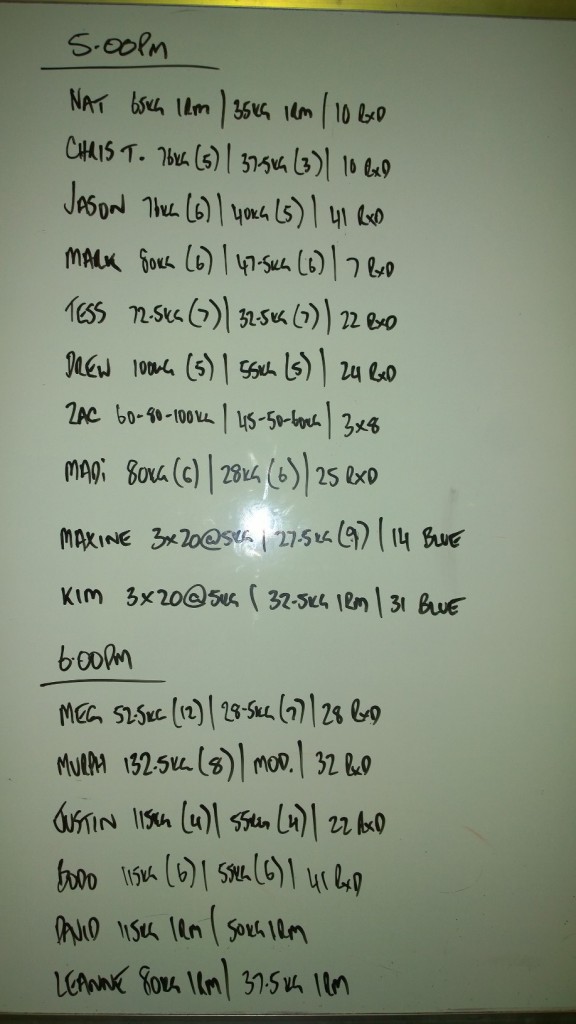 5.00PM
NAT 65KG 1RM | 35KG 1RM | 10 RxD
CHRIS T. 76KG (5) | 37.5KG (3) | 10 RxD
JASON 76KG (6) | 40KG (5) | 41 RxD
MARK 80KG (6) | 47.5KG (6) | 7 RxD
TESS 72.5KG (7) | 32.5KG (7) | 22 RxD
DREW 100KG (5) | 55KG (5) | 24 RxD
ZAC 60-80-100KG | 45-50-60KG | 3x8
MADi 80KG (6) | 28KG (6) | 25 RXD
MAXINE 3x20@5KG | 27.5KG (9) | 14 BLUE
KIM 3x20@5KG | 32.5KG 1RM | 31 BLUE
6.00PM
MEG 52.5KG (12) | 28.5KG (7) | 28 RxD
MURPH 132.5KG (8) | MOD. | 32 RxD
JUSTIN 115KG (4) | 55KG (4) | 22 RxD
BODO 115KG (6) | 55KG (6) | 41 RxD
DAVID 115KG 1RM | 50KG 1RM
LEANNE 80KG 1RM | 37.5KG 1RM